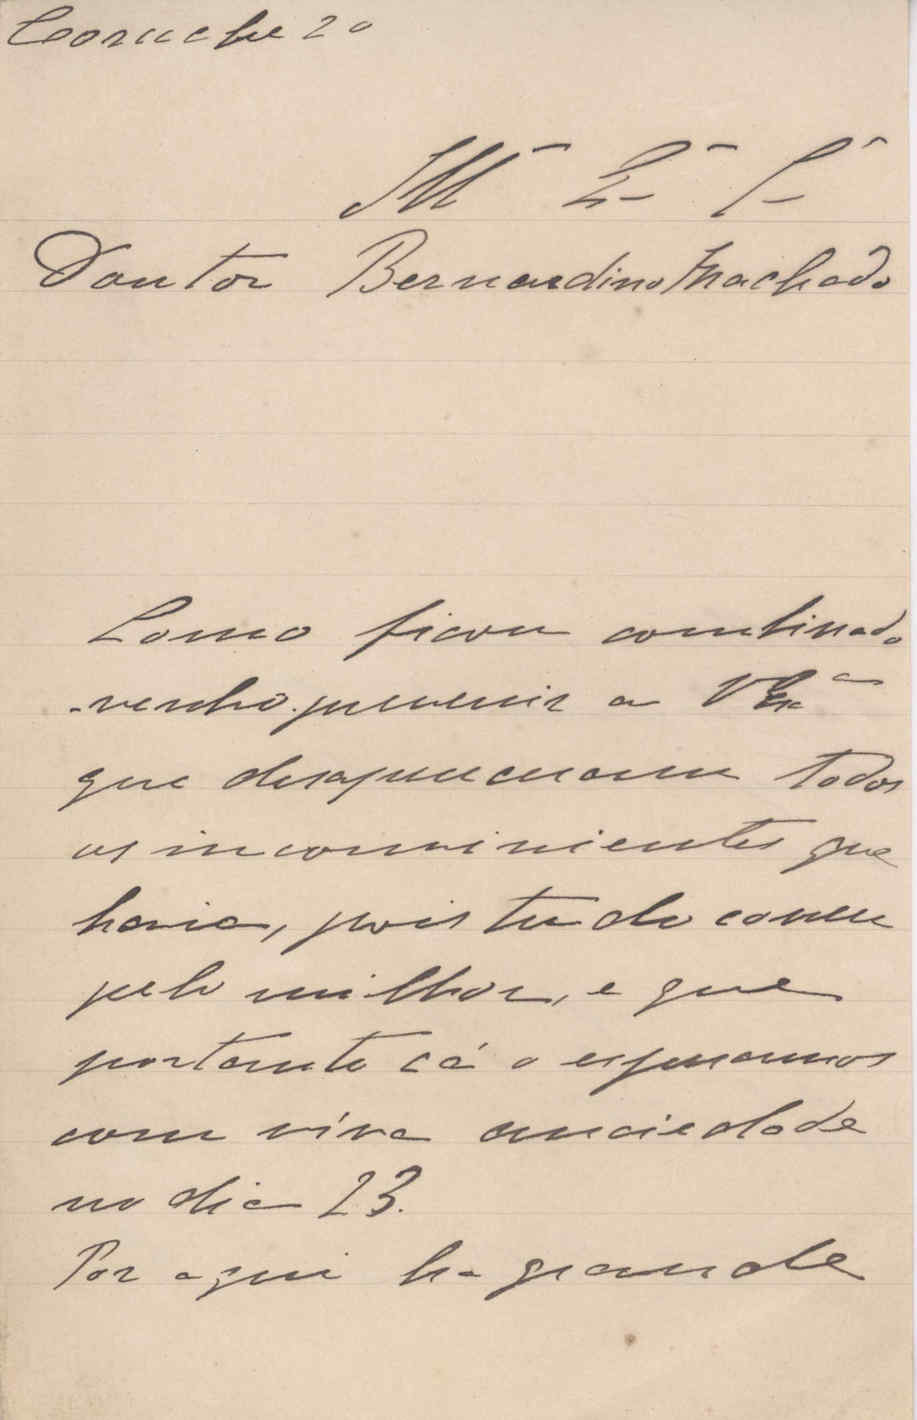 Coruche 20
Ill.mo Ex.mo Sr.
Doutor Bernardino Machado
Como ficou combinado
venho prevenir a V Ex.cia
que desapareceram todos
os inconvinientes que
havia, pois tudo correu
pelo milhor, e que
portanto cá o esperamos
com viva anciedade
no dia 23.
Por aqui ha grande